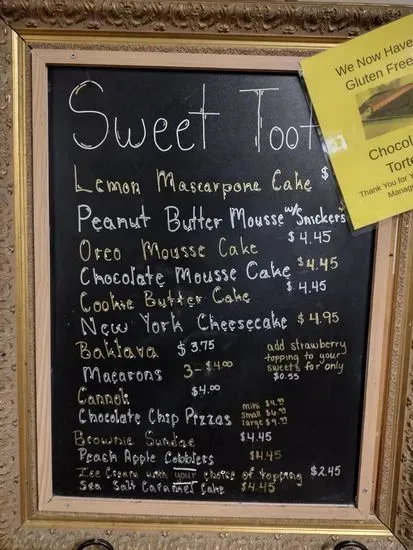 Sweet Toot
We Now Have
Gluten Free
Chocol
Torte
Thank You for Y
Manag
Lemon Mascarpone Cake $
Peanut Butter Mousse w/Snickers
$4.45
Oreo Mousse Cake
Chocolate Mousse Cake $4.45
$4.45
Cookie Butter Cake
New York Cheesecake $4.95
Baklava $3.75
add strawberry
topping to your
sweets for only
$0.55
Macarons 3-$4.00
Cannoli $4.00
Chocolate Chip Pizzas
mini
small
large
Brownie Sundae $4.45
Peach Apple Cobblers $4.45
Ice Cream with your choice of topping $2.45
Sea Salt Caramel Cake $4.45